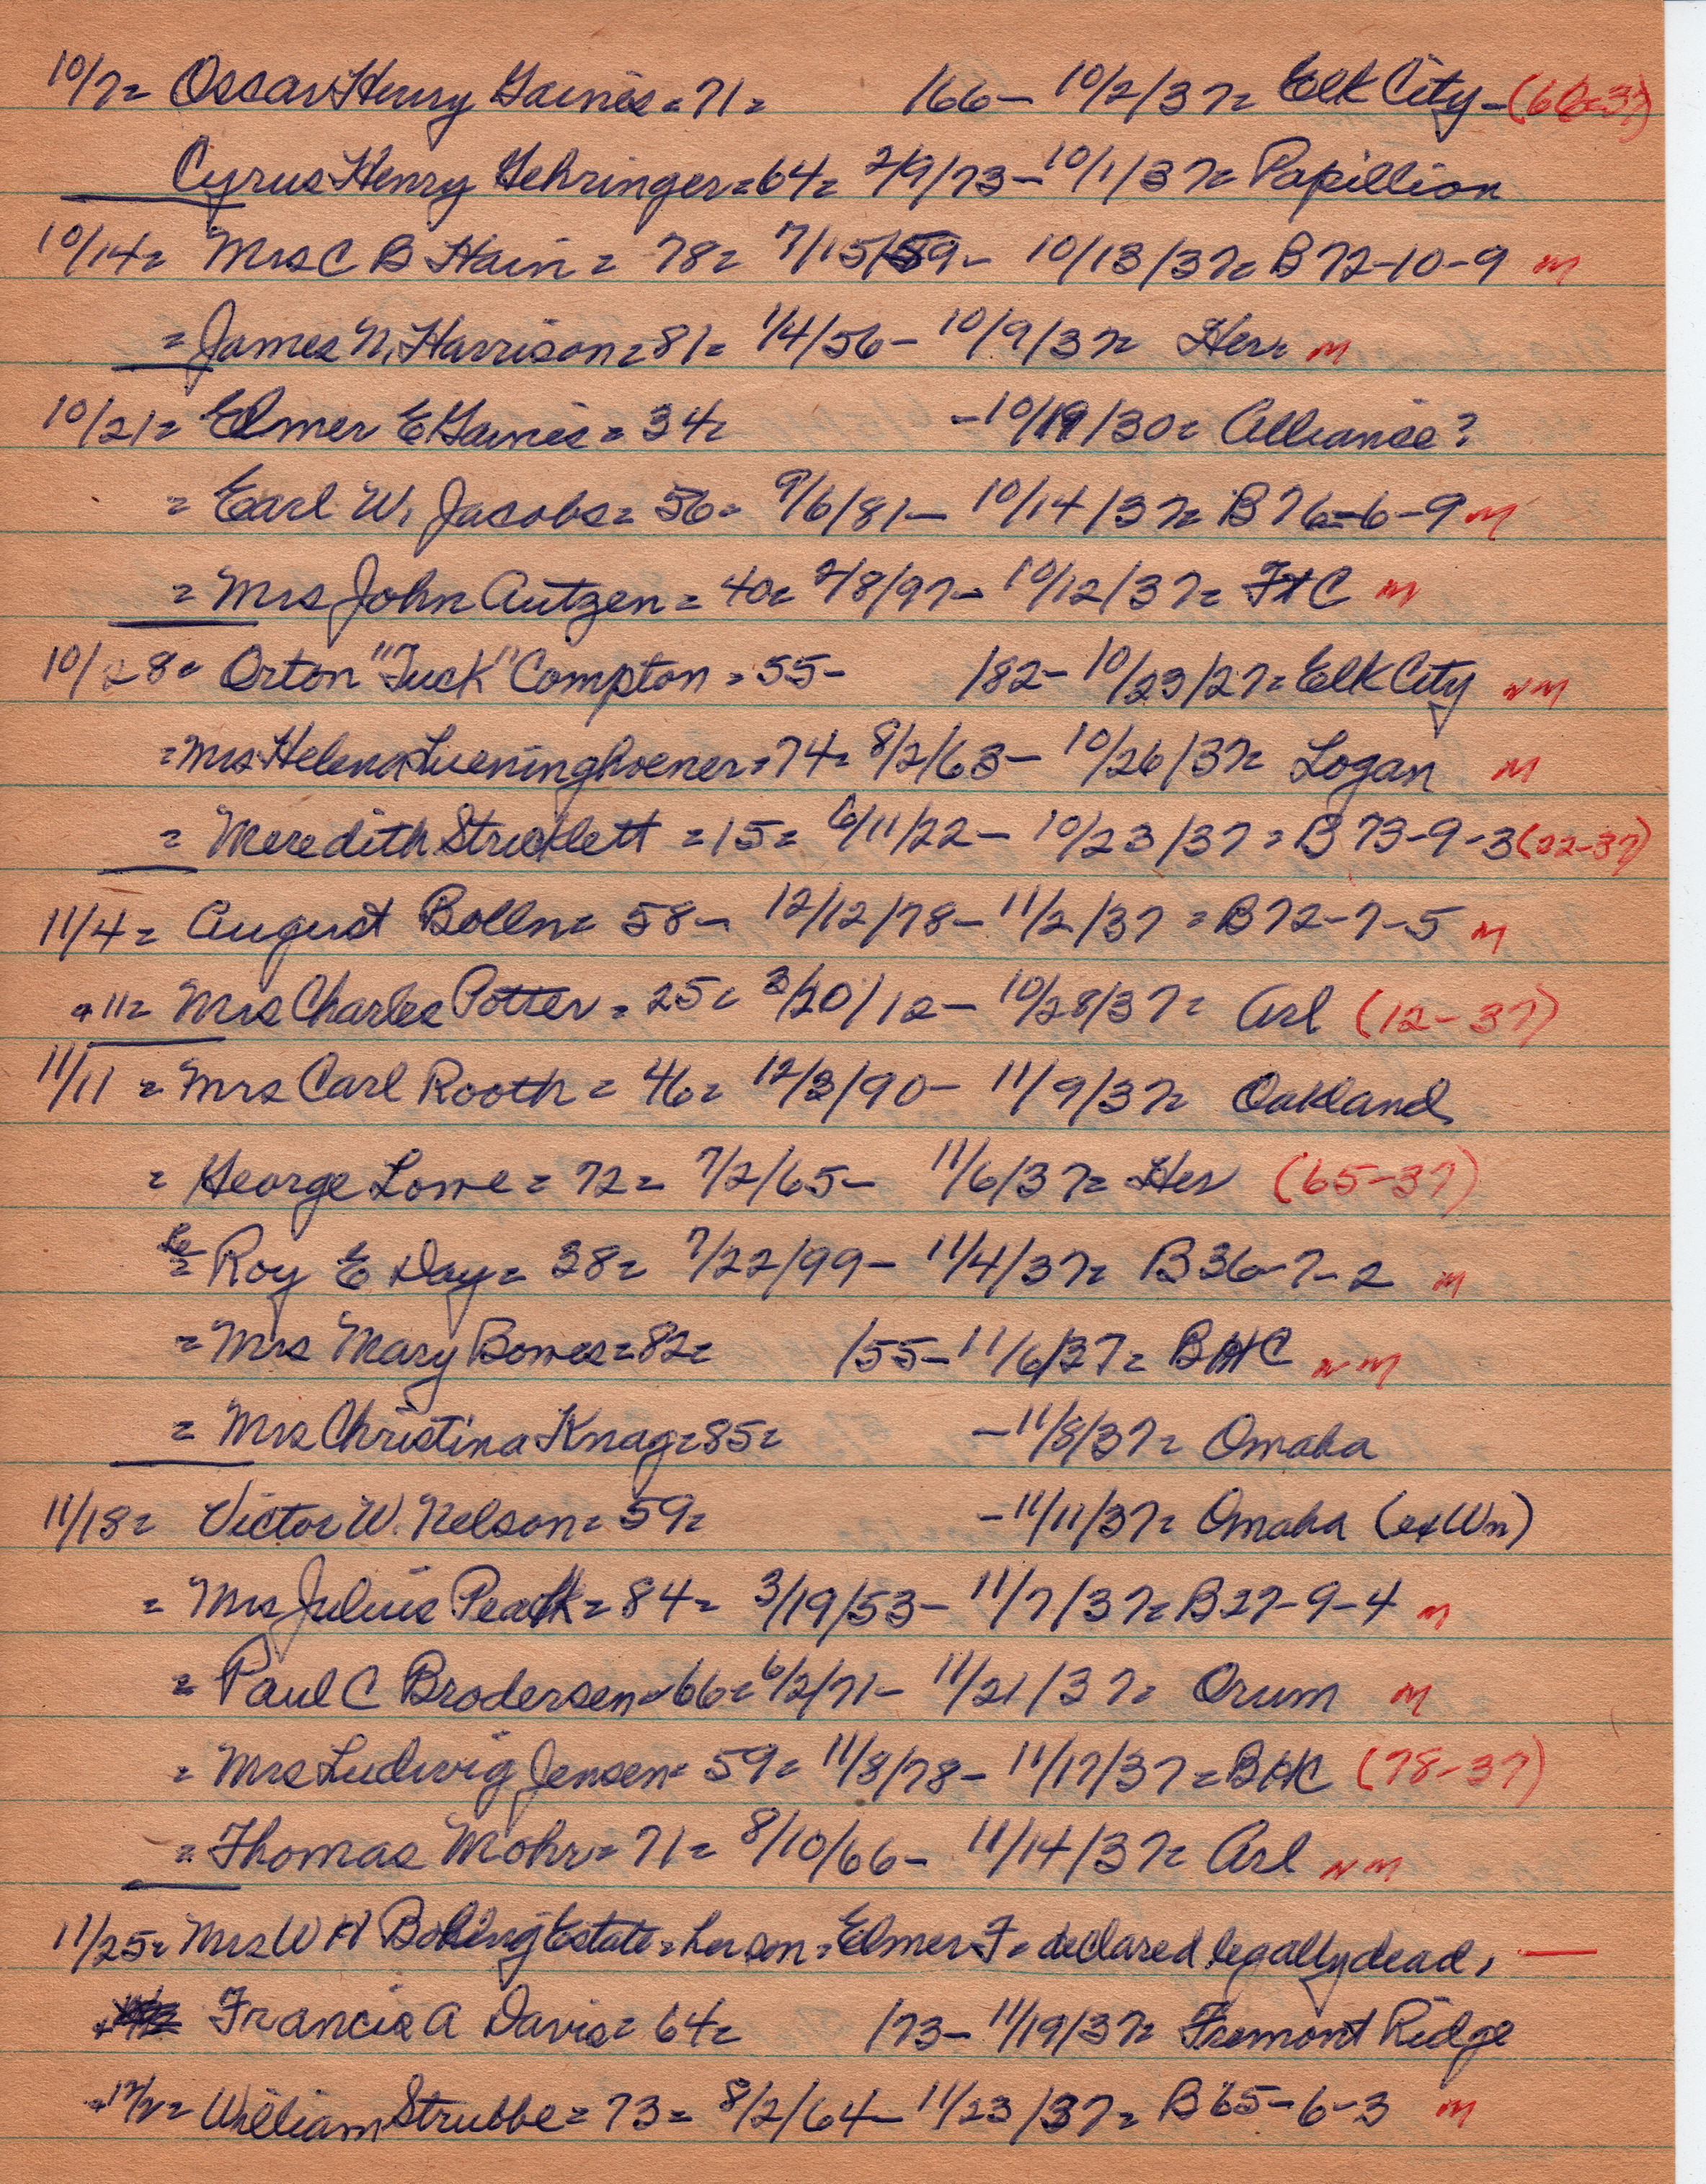 10/7= Oscar Henry Gaines=71= /66- 10/2/37= Elk City-(66-37)
Cyrus Henry Gehringer=64= 2/9/73-10/1/37= Papillion
10/14= Mrs C B Hain= 78= 7/15/59- 10/13/37= B72-10-9 M
=James N. Harrison=81= 1/4/56- 10/9/37= Her M
10/21= Elmer E Gaines= 34= -10/19/30= Alliance?
= Earl W. Jacobs= 56= 9/6/81- 10/14/37= B76-6-9 M
= Mrs John Autzen= 40= 2/8/97- 10/12/37= FtC M
10/28= Orton "Tuck" Compton=55- /82- 10/23/27= Elk City NM
=Mrs Helena Lueninghoener=74= 8/2/63- 10/26/37= Logan M
= Meredith Stricklett =15= 6/11/22- 10/23/37= B73-9-3(22-37)
11/4= August Bolln= 58- 12/12/78- 11/2/37 =B72-7-5 M
+11= Mrs Charles Potter= 25= 3/20/12- 10/28/37= Arl (12-37)
11/11 = Mrs Carl Rooth= 46= 12/3/90- 11/9/37= Oakland
= George Lowe= 72= 7/2/65- 11/6/37= Her (65-37)
= Roy E Day= 38= 7/22/99- 11/4/37= B36-7-2 M
= Mrs Mary Bowes=82= /55-11/6/37= BHC NM
= Mrs Christina Knag=85= -11/8/37= Omaha
11/18= Victor W. Nelson= 59= -11/11/37= Omaha (exWn)
= Mrs Julius Peatk= 84= 3/19/53- 11/7/37= B27-9-4 M
= Paul C Brodersen=66= 6/2/71- 11/21/37= Orum M
= Mrs Ludwig Jensen= 59= 11/8/78- 11/17/37=BHC (78-37)
= Thomas Mohr= 71= 8/10/66- 11/14/37= Arl NM
11/25= Mrs W H Estate=her son=Elmer F= declared legally dead,
Francis A Davis= 64= /73- 11/19/37= Fremont Ridge
=12/2= William Strubbe= 73= 8/2/64- 11/23/37= B65-6-3 M